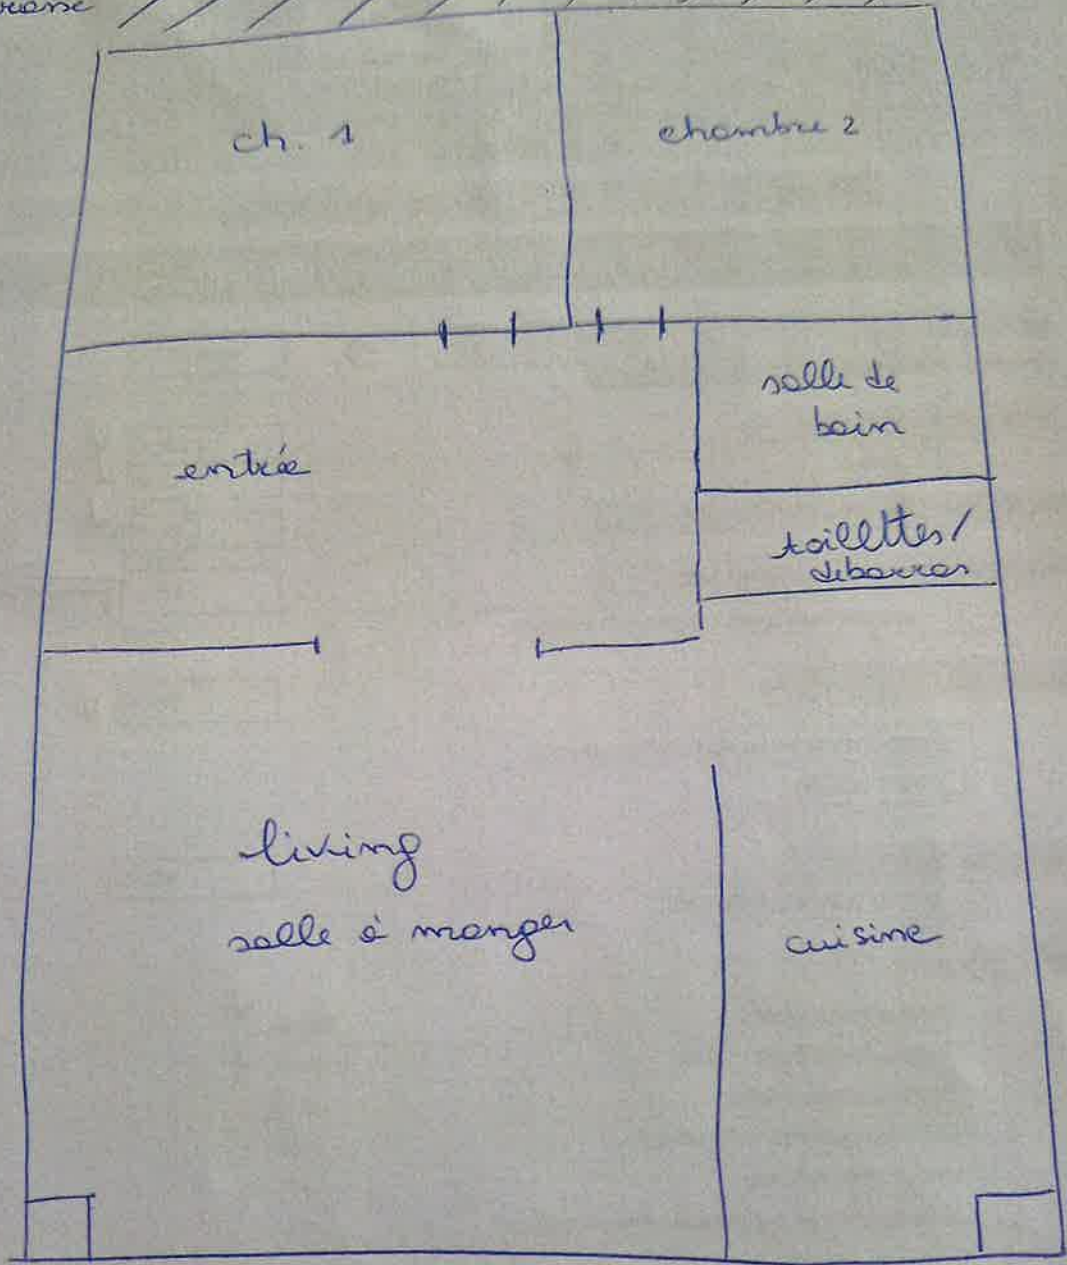 ch. 1
chambre 2
salle de
bain
entrée
toilettes/
debarras
living
salle à manger
cuisine